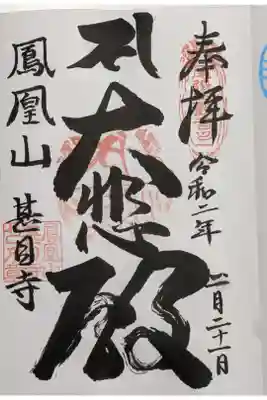 奉拝
令和二年
八月二十一日
大悲殿
鳳凰山 甚目寺